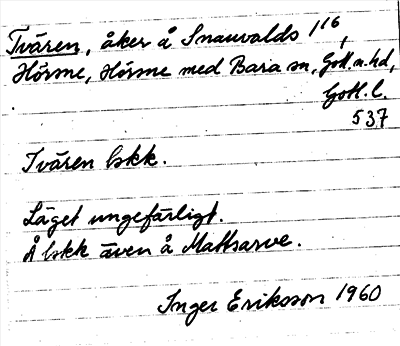 Tvären, åker å Snauvalds 1¹⁶,
Hörsne, Hörsne med Bara sn, Gotl. n. hd,
Gotl. l.
537
Tvären lskk.
Läget ungefärligt.
Å lskk även å Mattsarve.
Inger Eriksson 1960